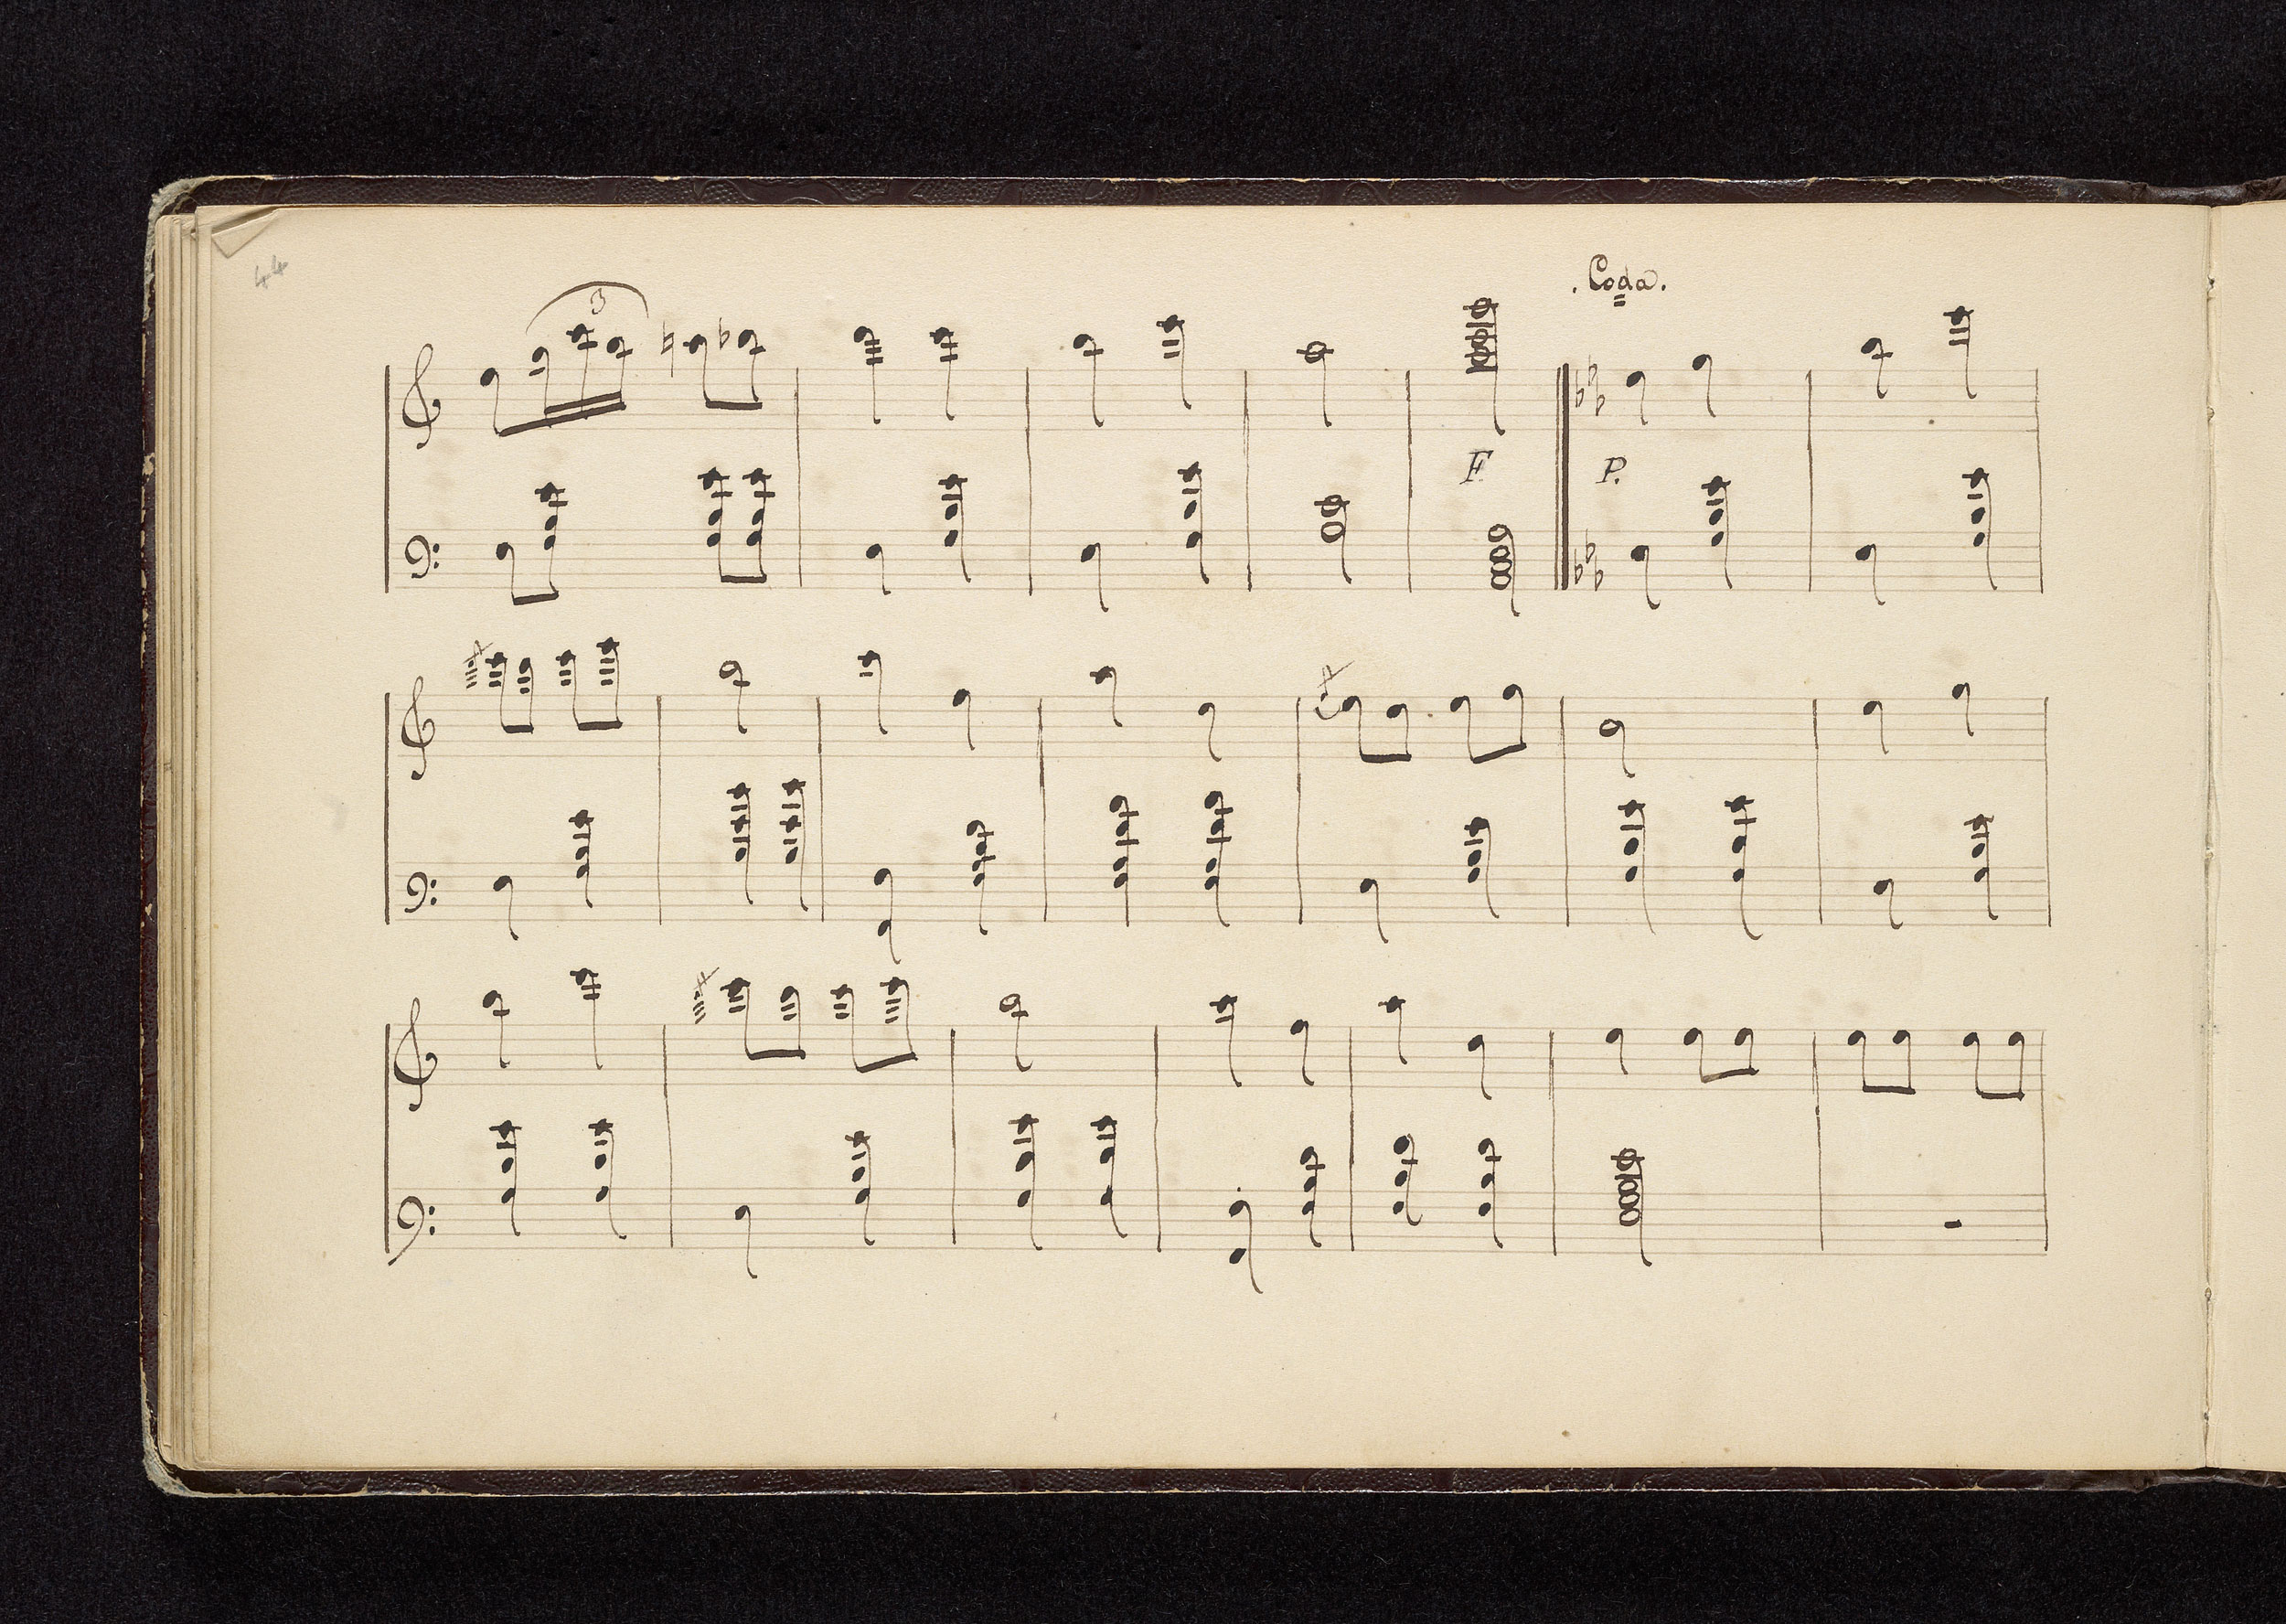 44
. Coda.
3
F. P.